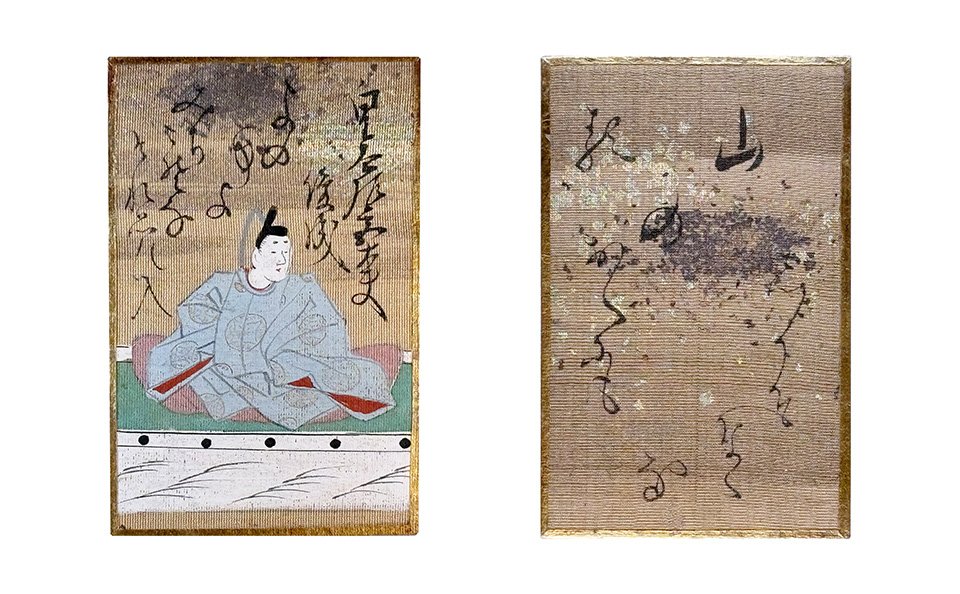 皇太后宮大夫
俊成
よのな
かよ
みちこそな
けれ思ひ入
る
山
の
おくにも
しかそ
なく
なる